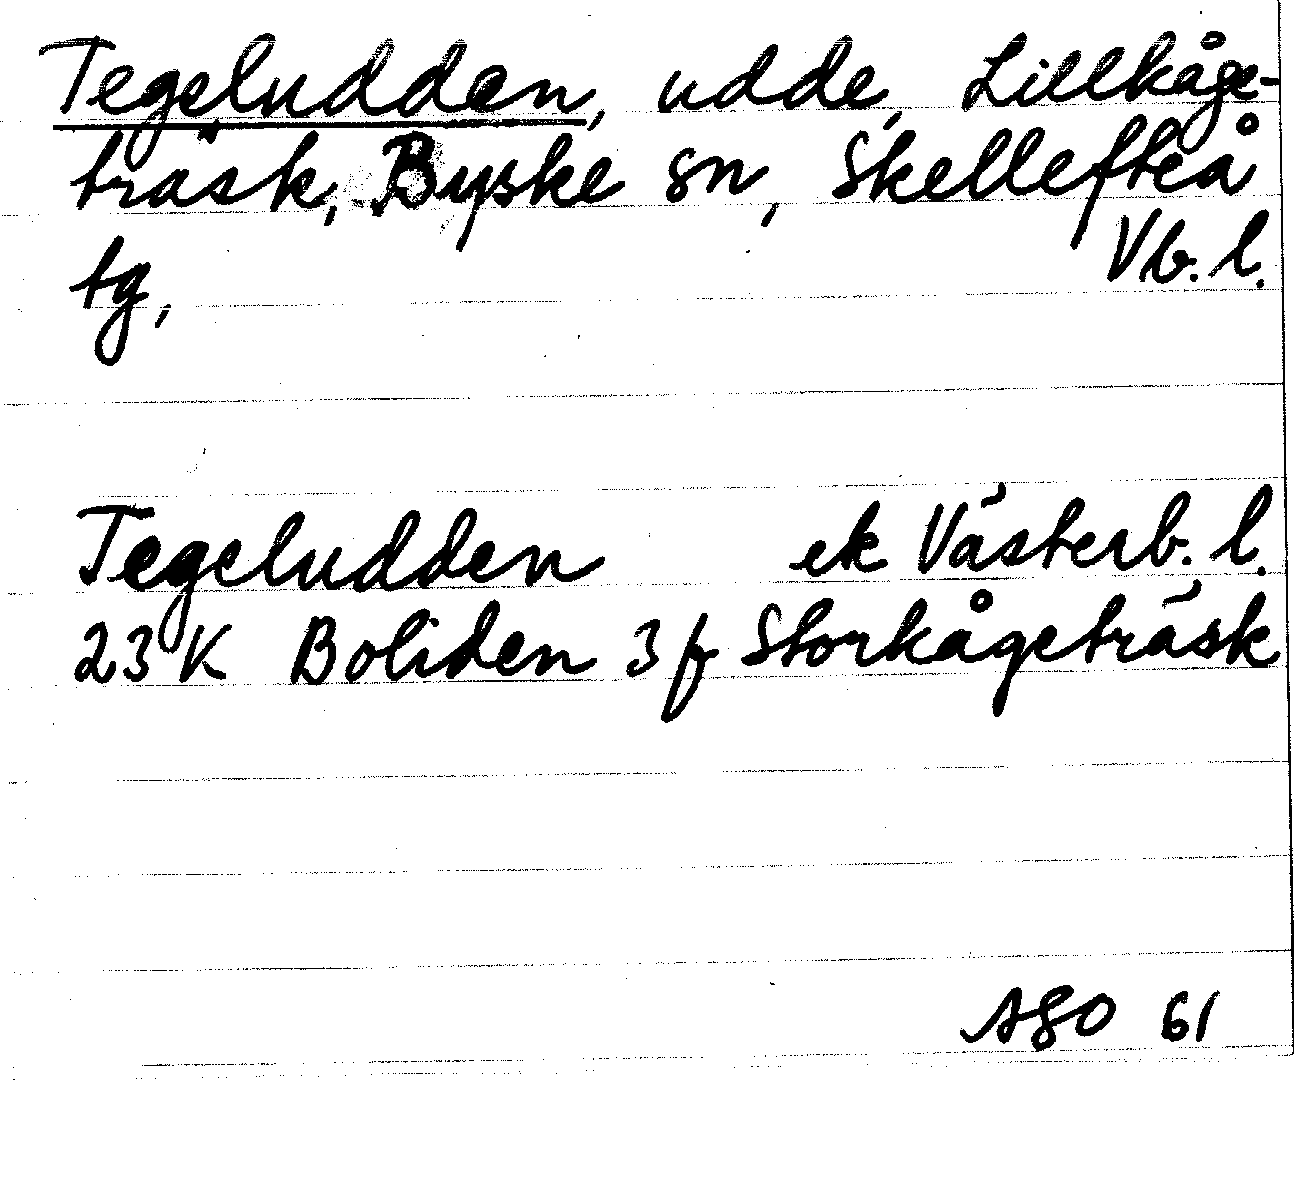 Tegeludden, udde, Lillkåge-
träsk, Byske sn, Skellefteå
tg, Vb. l.
Tegeludden ek Västerb. l.
23 K Boliden 3 f Storkågeträsk
61